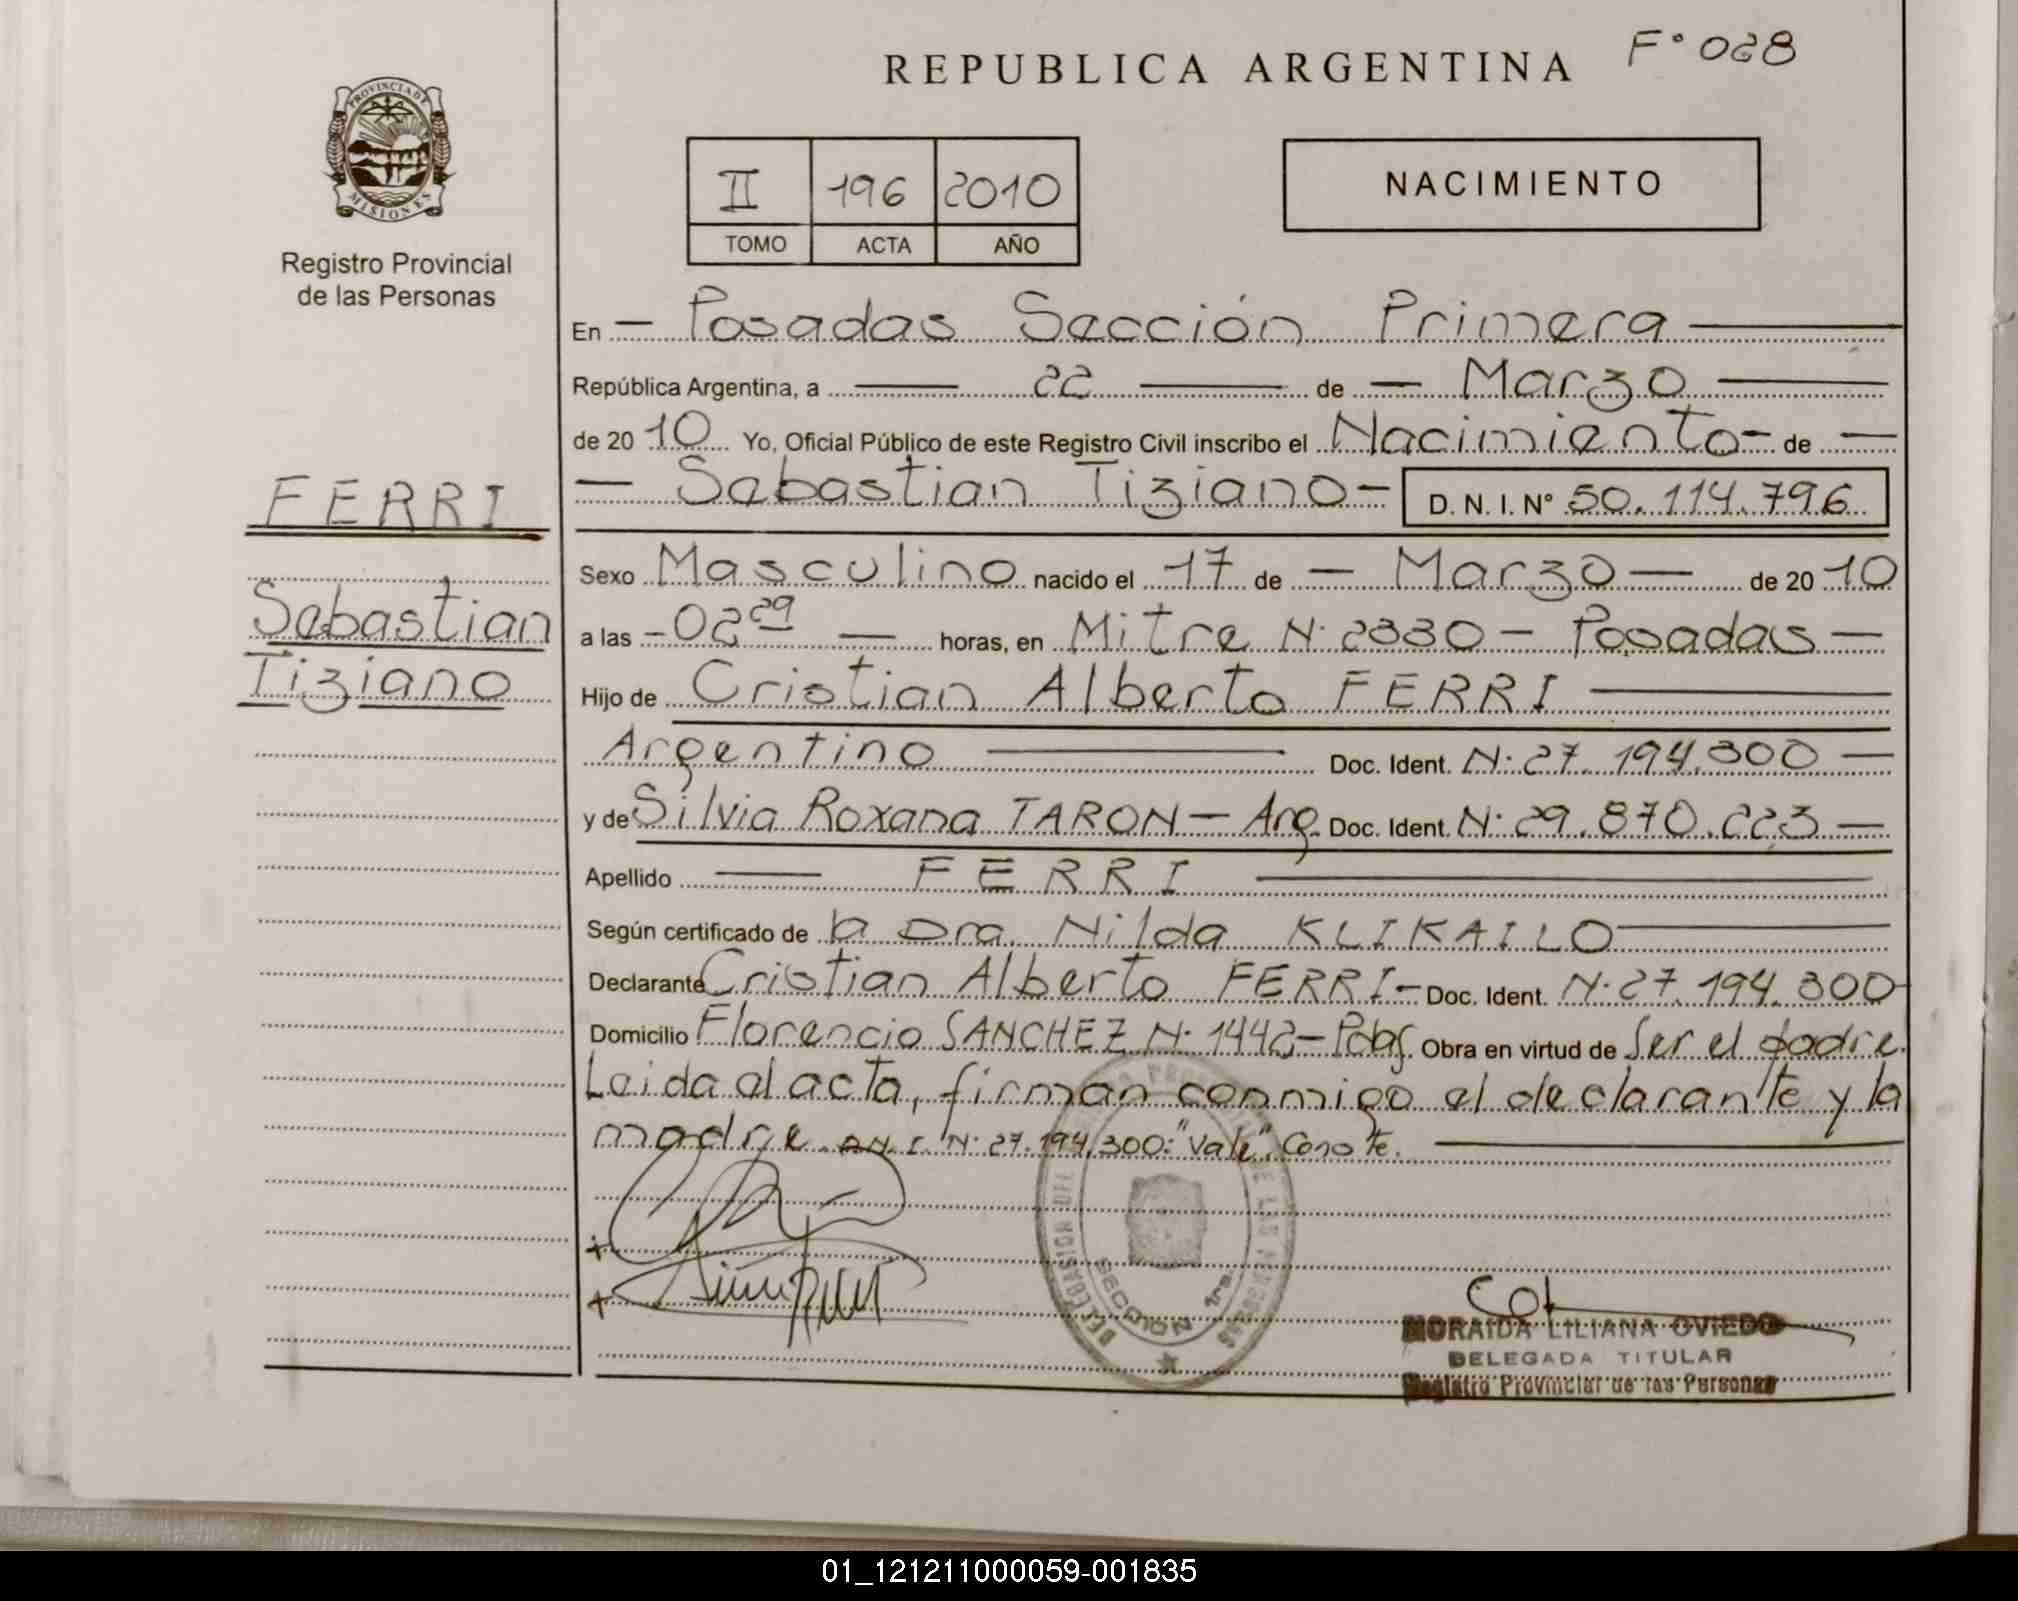 REPUBLICA ARGENTINA
F° 028
PROVINCIA DE
MISIONES
Registro Provincial
de las Personas
II 196 2010
TOMO ACTA AÑO
NACIMIENTO
En — Posadas Sección Primera —
República Argentina, a — 22 — de — Marzo —
de 20 10 Yo, Oficial Público de este Registro Civil inscribo el Nacimiento — de —
— Sebastian Tiziano — D. N. I. N° 50.114.796
FERRI
Sebastian
Tiziano
Sexo Masculino nacido el 17 de — Marzo — de 20 10
a las — 02 29 — horas, en Mitre N· 2330 — Posadas —
Hijo de Cristian Alberto FERRI —
Argentino — Doc. Ident. N· 27.194.300 —
y de Silvia Roxana TARON — Arg. Doc. Ident. N· 29.870.223 —
Apellido — FERRI —
Según certificado de la Dra. Nilda KLIKAILO —
Declarante Cristian Alberto FERRI — Doc. Ident. N· 27.194.300
Domicilio Florencio SANCHEZ N· 1442 — Pdas. Obra en virtud de Ser el padre.
Leida el acta, firman conmigo el declarante y la
madre. D.N.I. N· 27.194.300: "Vale". Conste. —
DELEGACION DEL REGISTRO PROVINCIAL DE LAS PERSONAS
SECCION 1ra.
MORAIDA LILIANA OVIEDO
DELEGADA TITULAR
Registro Provincial de las Personas
01_121211000059-001835